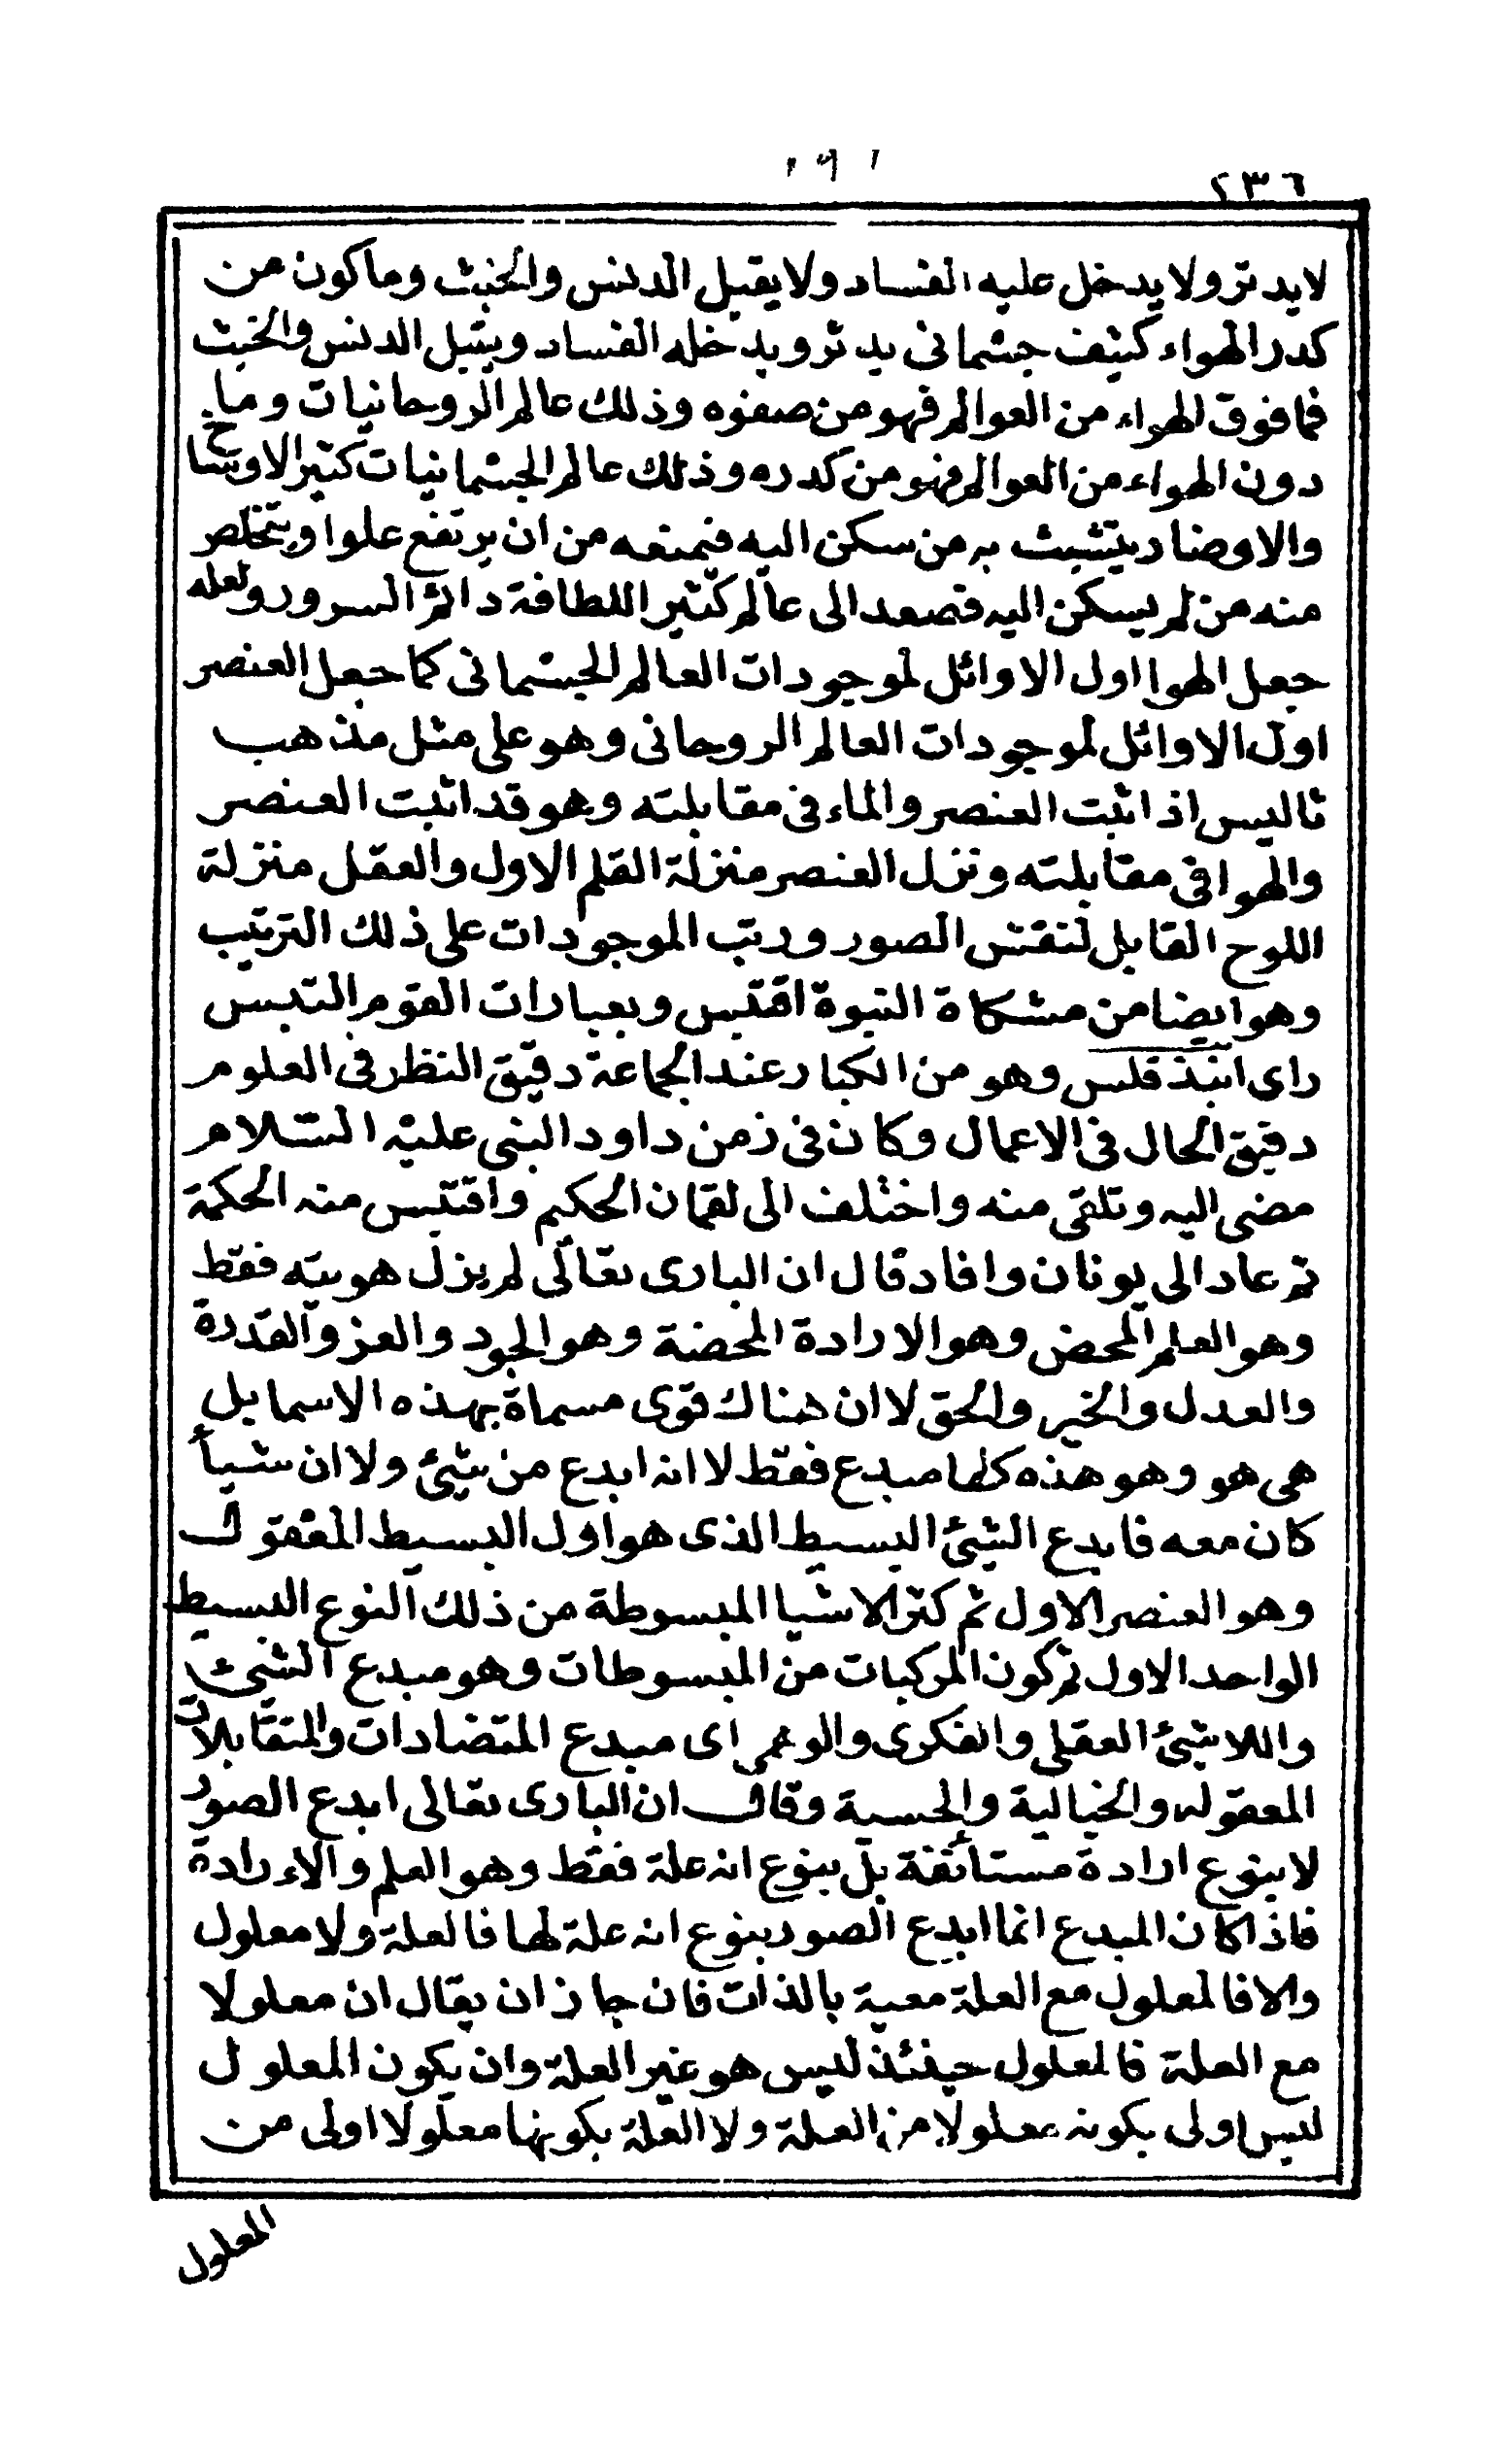 ٢٣٦
لايدثر ولا يدخل عليه الفساد ولا يقبل الدنس والخبث وما كون من
كدر الهواء كثيف جسمانى يدثر ويدخله الفساد ويقبل الدنس والخبث
فما فوق الهواء من العوالم فهو من صفوه وذلك عالم الروحانيات وما
دون الهواء من العوالم فهو من كدره وذلك عالم الجسمانيات كثير الاوساخ
والاوضار يتشبث به من سكن اليه فيمنعه من ان يرتفع علوا ويتخلص
منه من لم يسكن اليه فصعد الى عالم كثير اللطافة دائم السرور ولعله
جعل الهوا اول الاوائل لموجودات العالم الجسمانى كما جعل العنصر
اول الاوائل لموجودات العالم الروحانى وهو على مثل مذهب
تاليس اذ اثبت العنصر والماء فى مقابلته وهو قد اثبت العنصر
والهوا فى مقابلته ونزل العنصر منزلة القلم الاول والعقل منزلة
اللوح القابل لنقش الصور ورتب الموجودات على ذلك الترتيب
وهو ايضا من مشكاة النبوة اقتبس وبعبارات القوم التبس
راى انبذقلس وهو من الكبار عند الجماعة دقيق النظر فى العلوم
دقيق الحال فى الاعمال وكان فى زمن داود النبى عليه السلام
مضى اليه وتلقى منه واختلف الى لقمان الحكيم واقتبس منه الحكمة
ثم عاد الى يونان وافاد قال ان البارى تعالى لم يزل هويته فقط
وهو العلم المحض وهو الارادة المحضة وهو الجود والعز والقدرة
والعدل والخير والحق لا ان هناك قوى مسماة بهذه الاسما بل
هى هو وهو هذه كلها مبدع فقط لا انه ابدع من شئ ولا ان شيأ
كان معه فابدع الشئ البسيط الذى هو اول البسيط المعقول
وهو العنصر الاول ثم كثر الاشيا المبسوطة من ذلك النوع البسيط
الواحد الاول ثم كون المركبات من المبسوطات وهو مبدع الشئ
واللا شئ العقلى والفكرى والوهمى اى مبدع المتضادات والمتقابلات
المعقوله والخيالية والحسية وقال ان البارى تعالى ابدع الصور
لا بنوع ارادة مستأنفة بل بنوع انه علة فقط وهو العلم والاءرادة
فاذا كان المبدع انما ابدع الصور بنوع انه علة لها فالعلة ولا معلول
والا فالمعلول مع العلة معية بالذات فان جاز ان يقال ان معلولا
مع العلة فالمعلول حينئذ ليس هو غير العلة وان يكون المعلول
ليس اولى بكونه معلولا من العلة ولا العلة بكونها معلولا اولى من
المعلول